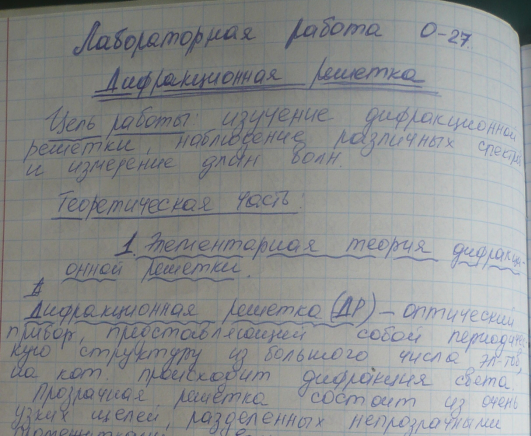 Лабораторная работа О-27
Дифракционная решетка
Цель работы: изучение дифракционной
решетки, наблюдение различных спектр
и измерение длин волн.
Теоретическая часть:
1. Элементарная теория дифракци-
онной решетки.
Дифракционная решетка (ДР) – оптический
прибор, представляющий собой периодиче-
скую структуру из большого числа эл-тов,
на кот. происходит дифракция света.
Прозрачная решетка состоит из очень
узких щелей, разделенных непрозрачными